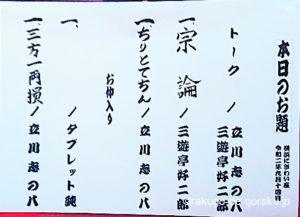 本日のお題
横浜にぎわい座
トーク ノ 立川志の八
三遊亭好二郎
一、宗論 ノ 三遊亭好二郎
一、ちりとてちん ノ 立川志の八
お仲入り
一、 ノ タブレット純
一、三方一両損 ノ 立川志の八